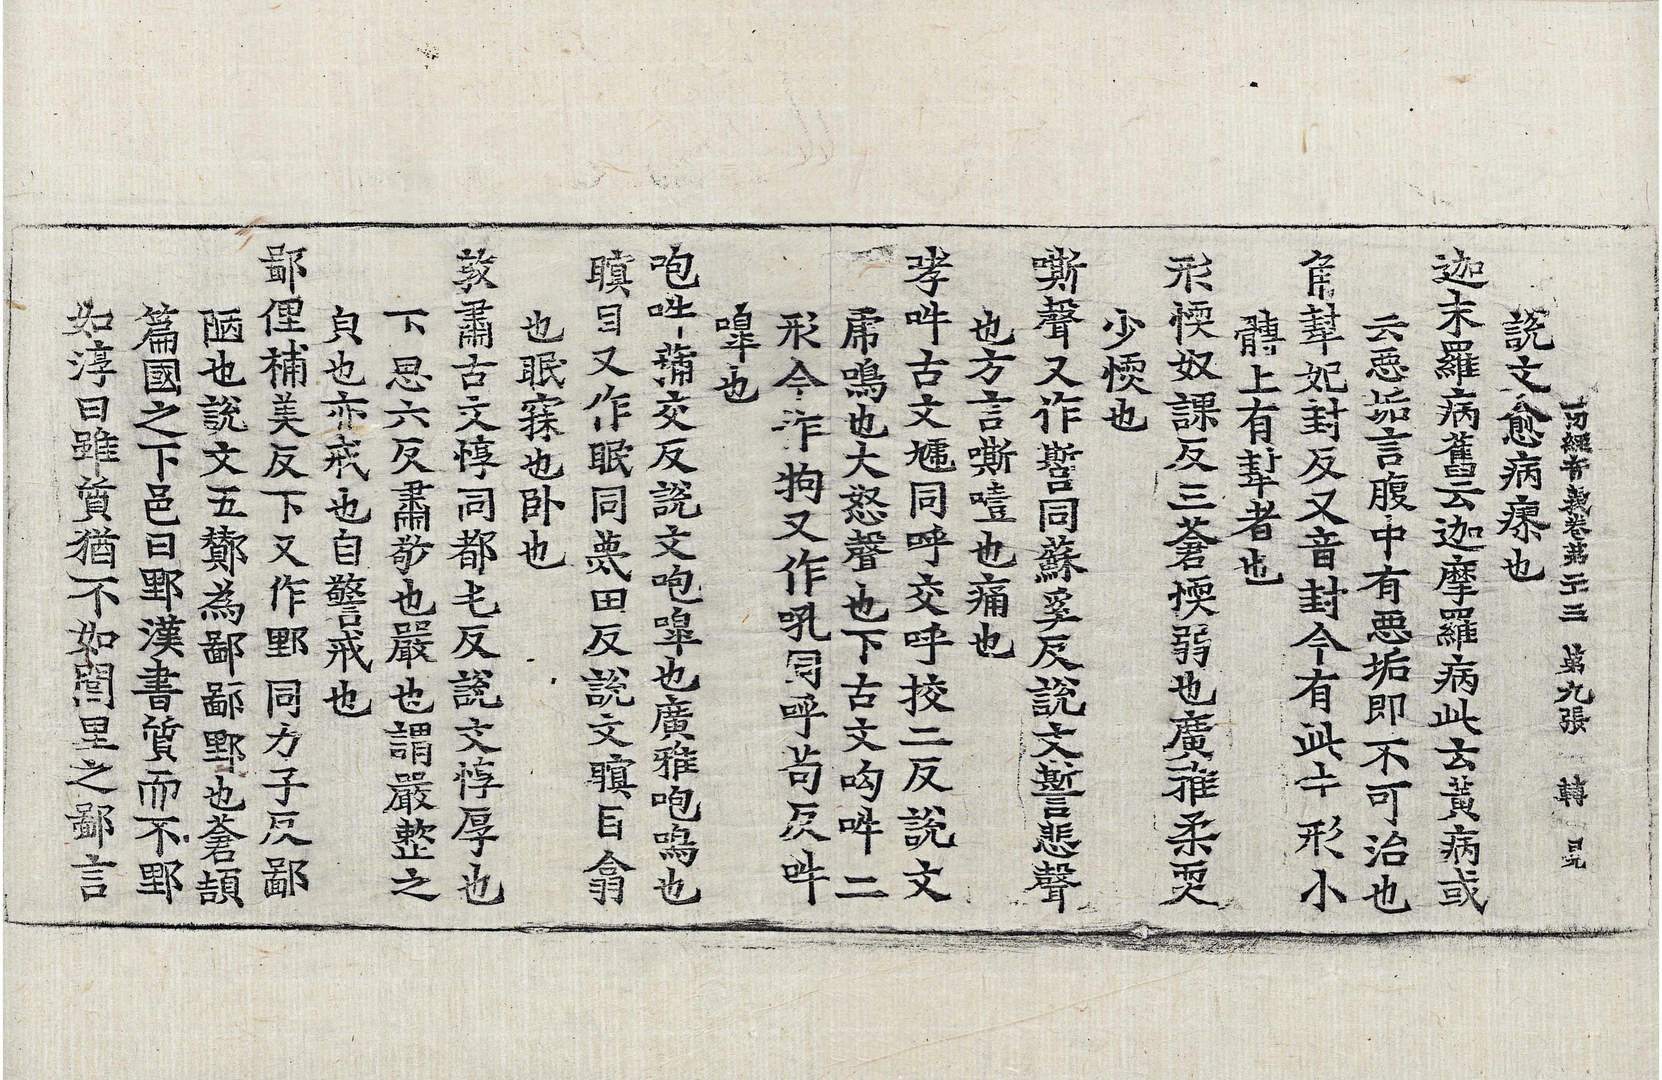 一切經音義卷第二十三 第九張 轉 見
說文愈病瘳也
迦末羅病舊云迦摩羅病此云黃病或
云惡垢言腹中有惡垢即不可治也
角犎妃封反又音封今有此牛形小
髆上有犎者也
形愞奴課反三蒼愞弱也廣雅柔耎
少愞也
嘶聲又作㽄同蘇奚反說文悲聲
也方言嘶噎也痛也
哮吽古文虓同呼交呼挍二反說文
虎鳴也大怒聲也下古文呴吽二
形今作拘又作吼同呼苟反吽
嘷也
咆吽蒲交反說文咆嘷也廣雅咆鳴也
瞋目又作眠同莫田反說文瞋目翕
也眠寐也卧也
敦肅古文惇同都屯反說文惇厚也
下思六反肅敬也嚴也謂嚴整之
皃也亦戒也自警戒也
鄙俚補美反下又作野同力子反鄙
陋也說文五酇為鄙鄙野也蒼頡
篇國之下邑曰野漢書質而不野
如淳曰雖質猶不如閭里之鄙言